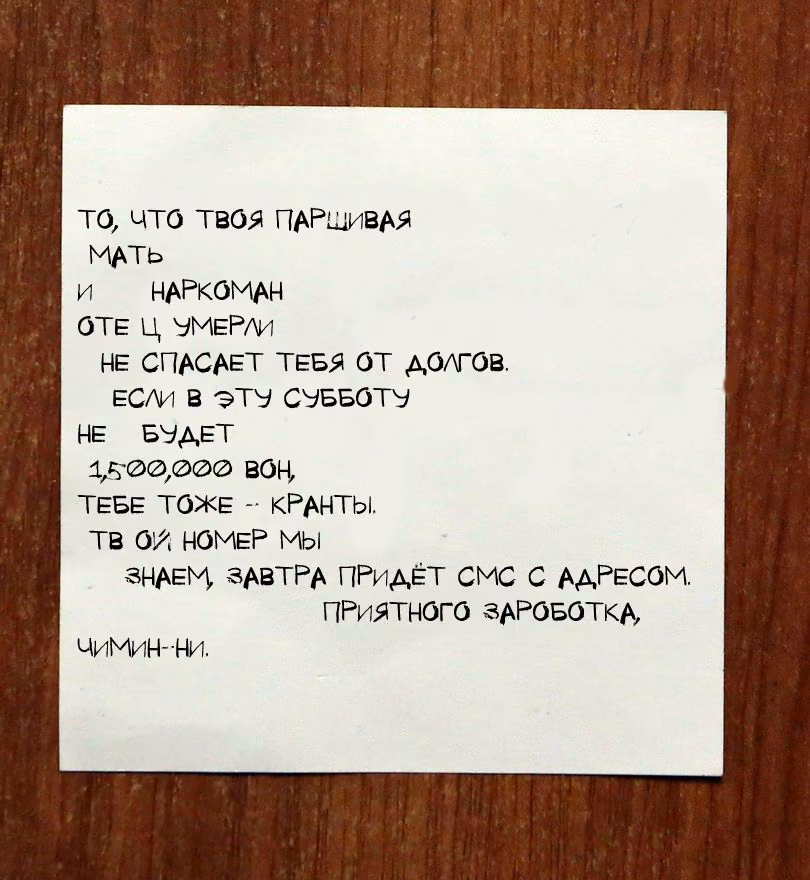 ТО, ЧТО ТВОЯ ПАРШИВАЯ
МАТЬ
И НАРКОМАН
ОТЕ Ц УМЕРЛИ
НЕ СПАСАЕТ ТЕБЯ ОТ ДОЛГОВ.
ЕСЛИ В ЭТУ СУББОТУ
НЕ БУДЕТ
1,500,000 ВОН,
ТЕБЕ ТОЖЕ - КРАНТЫ.
ТВ ОЙ НОМЕР МЫ
ЗНАЕМ, ЗАВТРА ПРИДЁТ СМС С АДРЕСОМ.
ПРИЯТНОГО ЗАРОБОТКА,
ЧИМИН-НИ.